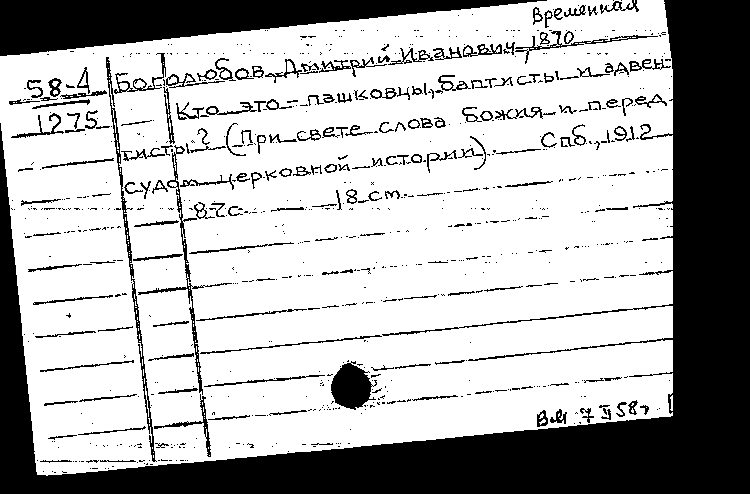 Временная
58-4 Боголюбов, Дмитрий Иванович, 1870
1275 Кто это - пашковцы, баптисты и адвен-
тисты? (При свете слова Божия и перед
судом церковной истории). Спб., 1912
87с. 18 cm.
7 II 58г